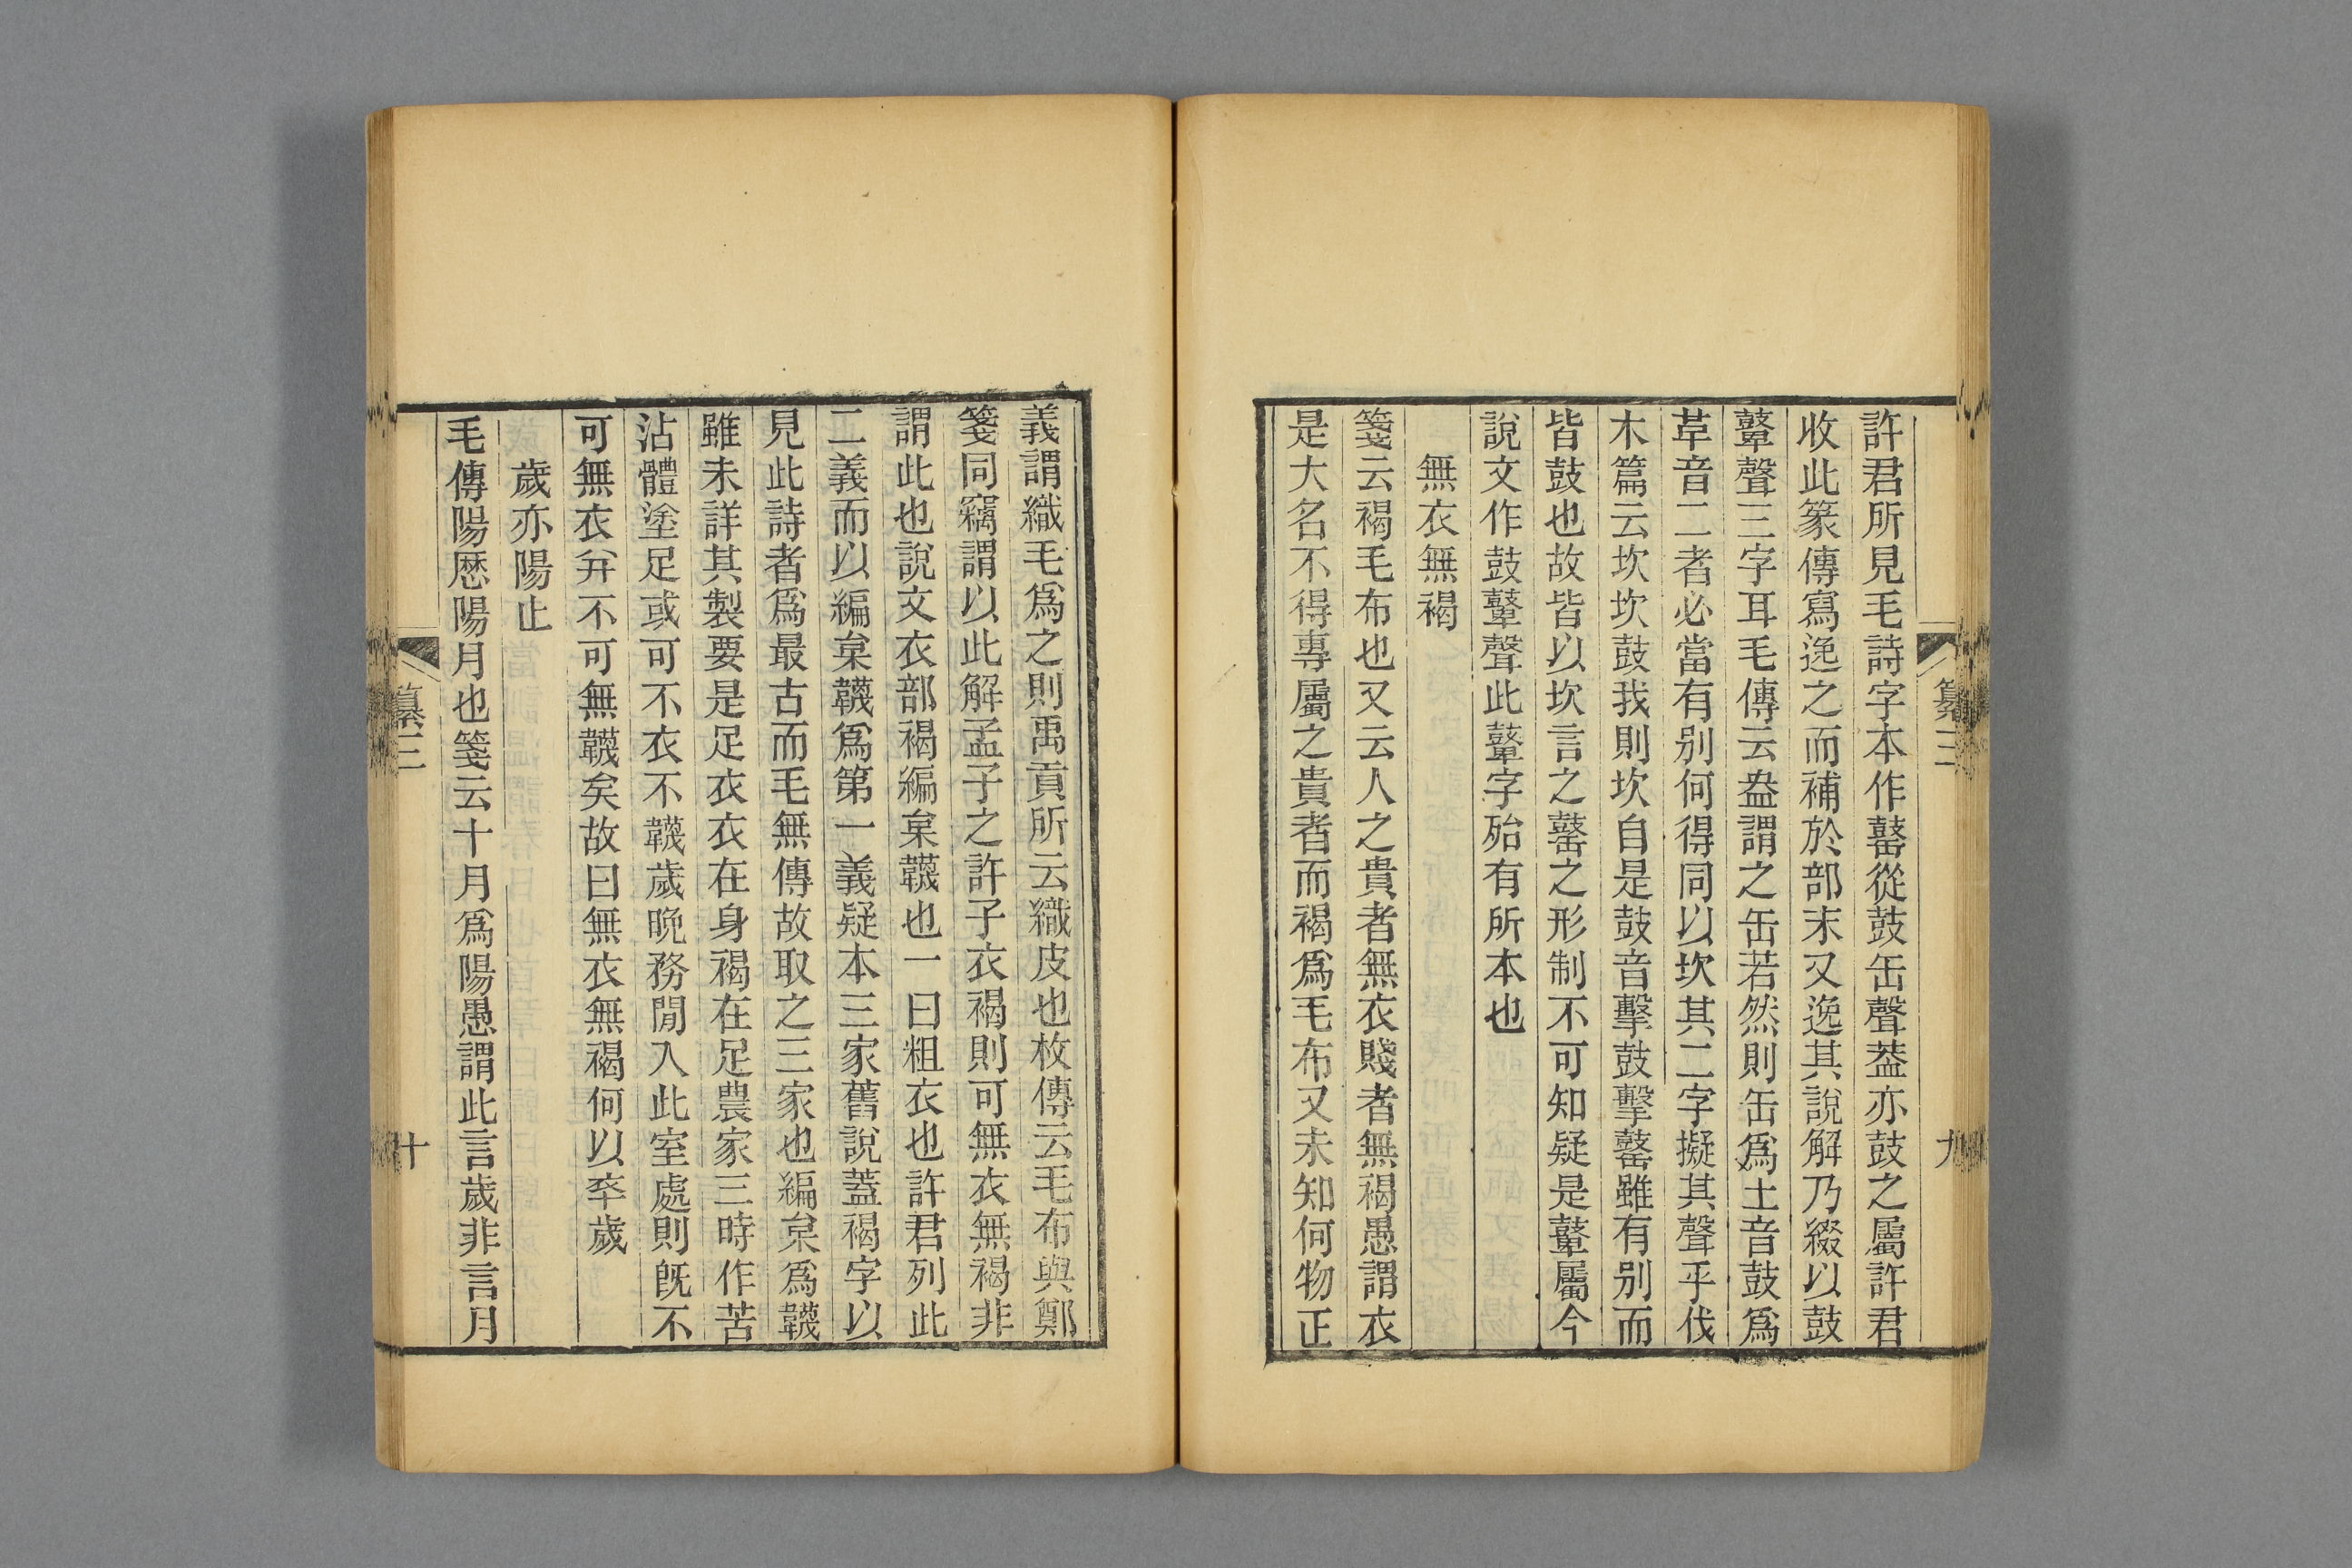 許君所見毛詩字本作鼛從鼓缶聲葢亦鼓之屬許君
收此篆傳寫逸之而補於部末又逸其說解乃綴以鼓
鼙聲三字耳毛傳云盎謂之缶若然則缶爲土音鼓爲
革音二者必當有别何得同以坎其二字擬其聲乎伐
木篇云坎坎鼓我則坎自是鼓音擊鼓擊鼛雖有别而
皆鼓也故皆以坎言之鼛之形制不可知疑是鼙屬今
說文作鼓鼙聲此鼙字殆有所本也
無衣無褐
箋云褐毛布也又云人之貴者無衣賤者無褐愚謂衣
是大名不得專屬之貴者而褐爲毛布又未知何物正
纂三
九
義謂織毛爲之則禹貢所云織皮也枚傳云毛布與鄭
箋同竊謂以此解孟子之許子衣褐則可無衣無褐非
謂此也說文衣部褐編枲韤也一曰粗衣也許君列此
二義而以編枲韤爲第一義疑本三家舊說蓋褐字以
見此詩者爲最古而毛無傳故取之三家也編枲爲韤
雖未詳其製要是足衣衣在身褐在足農家三時作苦
沾體塗足或可不衣不韤歲晚務閒入此室處則旣不
可無衣幷不可無韤矣故曰無衣無褐何以卒歲
歲亦陽止
毛傳陽歷陽月也箋云十月爲陽愚謂此言歲非言月
纂三
十